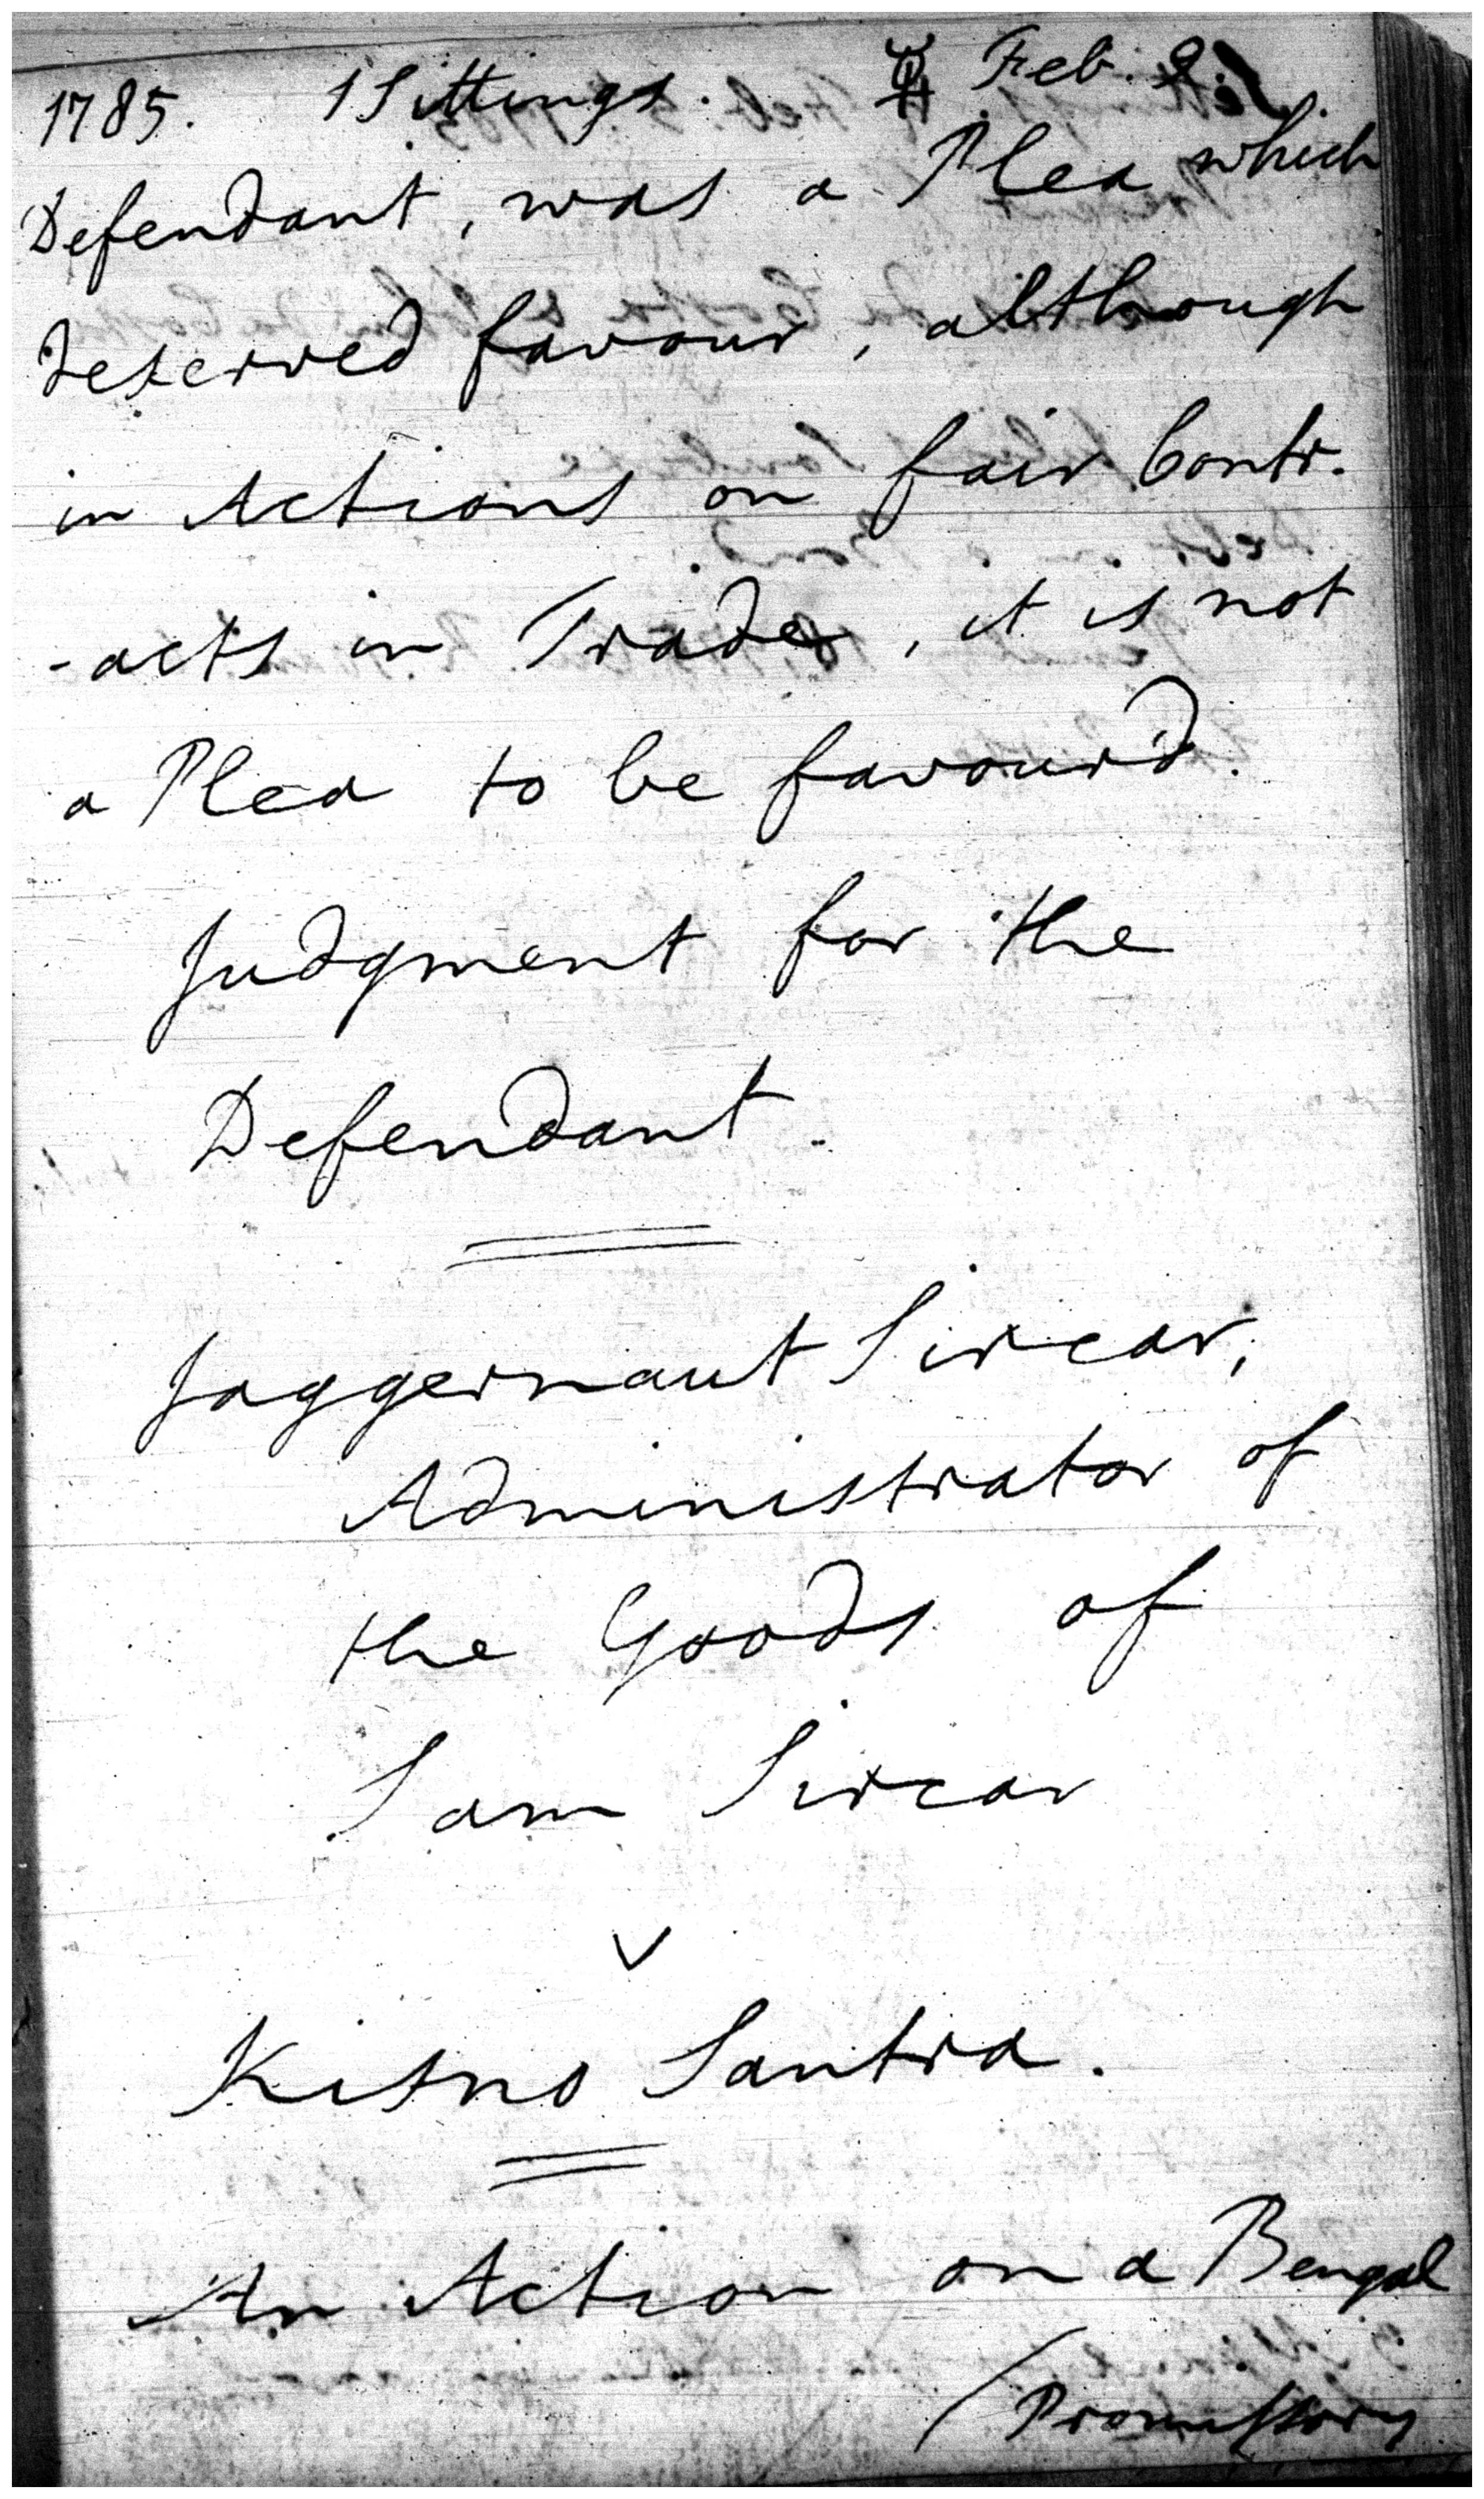 1785. 1 Sittings. ☿ Feb. 2.
Defendant, was a Plea which
deserved favour, although
in Actions on fair Contr.
-acts in Trade, it is not
a Plea to be favourd.
Judgment for the
Defendant.
Jaggernaut Sircar,
Administrator of
the Goods of
Sam Sircar
v
Kisno Santra.
An Action on a Bengal
/Promissory